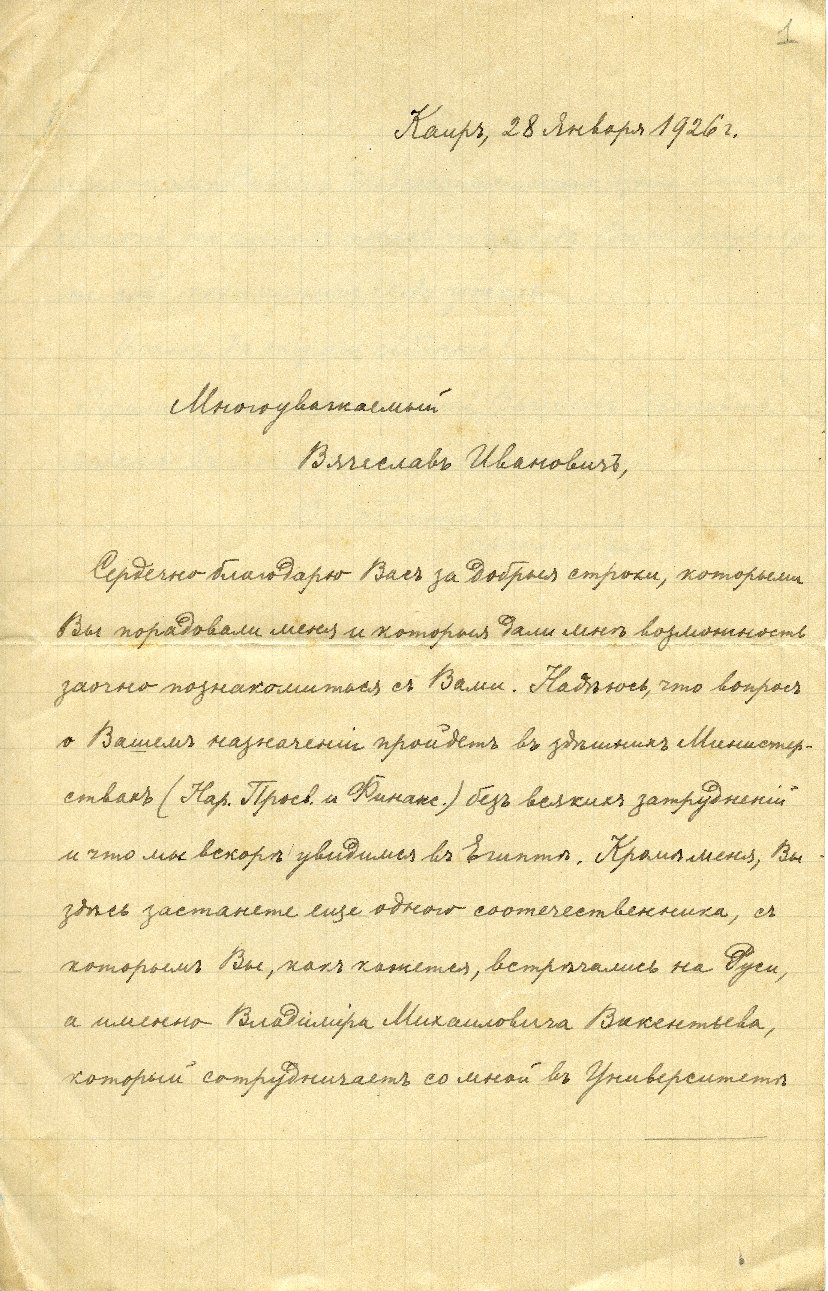 1
Каиръ, 28 Января 1926 г.
Многоуважаемый
Вячеславъ Ивановичъ,
Сердечно благодарю Васъ за добрыя строки, которыми
Вы порадовали меня и которыя дали мнѣ возможность
заочно познакомиться съ Вами. Надѣюсь, что вопросъ
о Вашемъ назначеніи пройдетъ въ здѣшнихъ Министер-
ствахъ (Нар. Просв. и Финанс.) безъ всякихъ затрудненій
и что мы вскорѣ увидимся въ Египтѣ. Кромѣ меня, Вы
здѣсь застанете еще одного соотечественника, съ
которымъ Вы, какъ кажется, встрѣчались на Руси,
а именно Владиміра Михаиловича Викентьева,
который сотрудничаетъ со мной въ Университетѣ